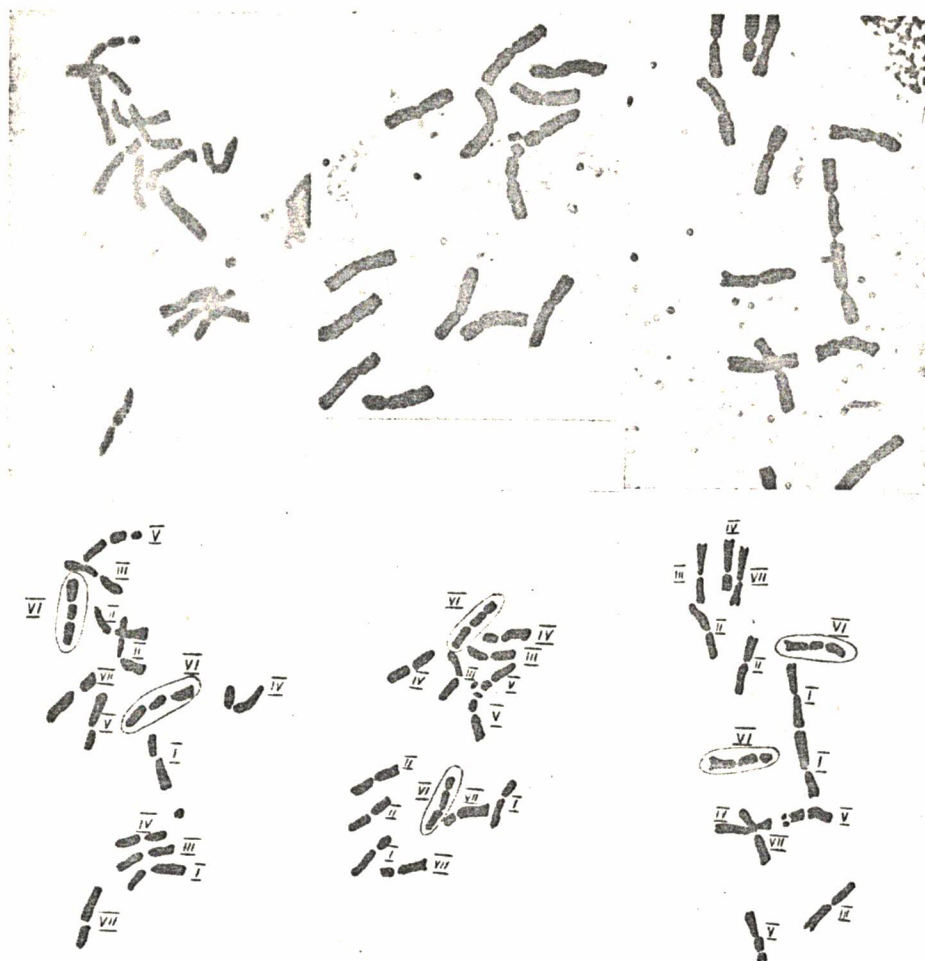 V
III
VI
II
II
VII
VI
IV
V
I
IV
III
I
VII
VI
IV
III
IV
III
V
V
II
VI
VII
I
II
I
VII
IV
III
VII
II
VI
II
I
VI
I
IV
V
VII
III
V